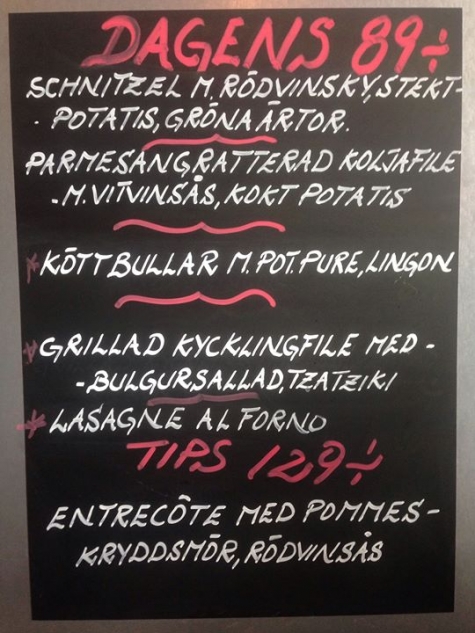 DAGENS 89:-
SCHNITZEL M. RÖDVINSKY, STEKT-
- POTATIS, GRÖNA ÄRTOR.
PARMESANGRATTERAD KOLJAFILE
- M. VITVINSÅS, KOKT POTATIS
* KÖTTBULLAR M. POT. PURE, LINGON
* GRILLAD KYCKLINGFILE MED -
- BULGURSALLAD, TZATZIKI
* LASAGNE AL FORNO
TIPS 129:-
ENTRECÔTE MED POMMES -
KRYDDSMÖR, RÖDVINSÅS